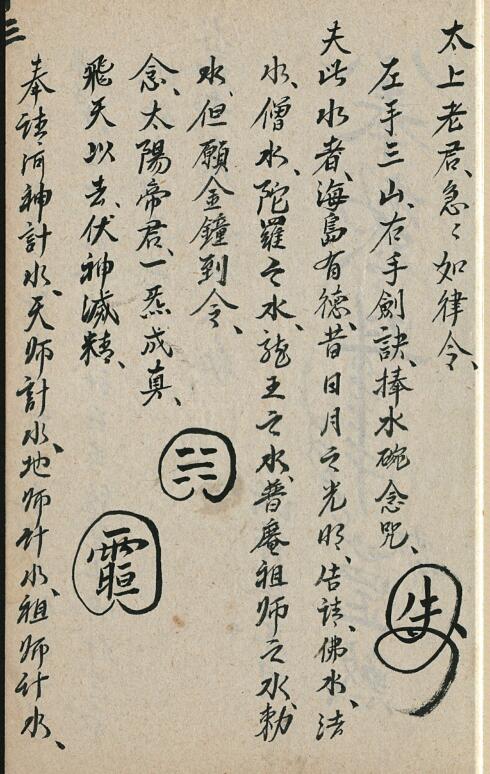 太上老君、急〻如律令、
左手三山、右手劍訣、捧水碗念咒、
夫此水者、海島有德、昔日月之光明、告請、佛水、法
水、僧水、陀羅之水、龍王之水、普庵祖師之水、勅
水、但願金鐘到令、
念、太陽帝君、一炁成真、
飛天以去、伏神滅精、
奉請河神計水、天師計水、地師計水、祖師計水、
三